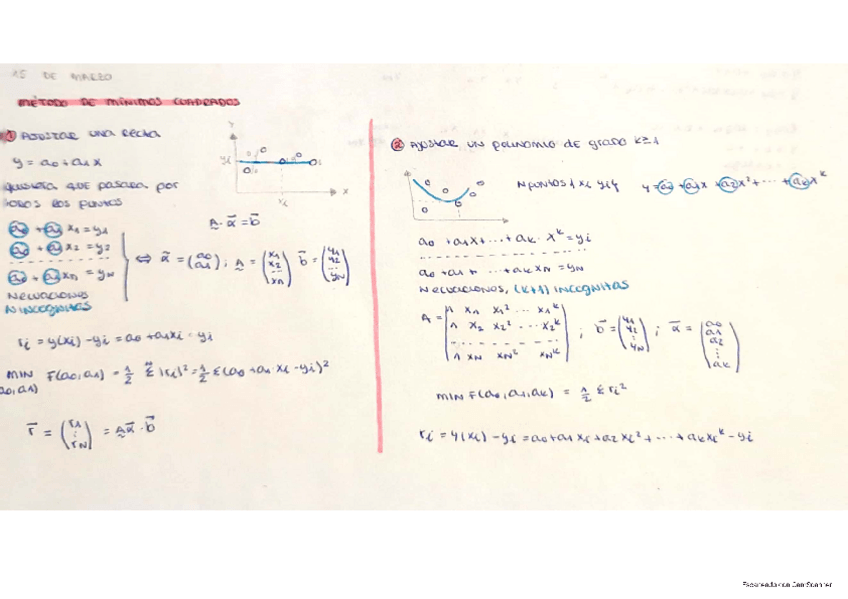 15 DE MARZO
MÉTODO DE MÍNIMOS CUADRADOS
① AJUSTAR UNA RECTA
y = a0 + a1x
QUERRÍA QUE PASARA POR
TODOS LOS PUNTOS
a0 + a1 x1 = y1
a0 + a1 x2 = y2
a0 + a1 xN = yN
N ECUACIONES
N INCOGNITAS
Y
yi
xi
X
A · α = b
⇔ α = (a0 a1) ; A = (x1 x2 ... xN) b = (y1 y2 ... yN)
ri = y(xi) - yi = a0 + a1xi - yi
MIN F(a0,a1) = 1/2 Σ |ri|² = 1/2 Σ (a0 + a1 · xi - yi)²
a0,a1)
r = (r1 ⋮ rN) = Aα · b
② AJUSTAR UN POLINOMIO DE GRADO K≥1
N PUNTOS { xi yi } y = a0 + a1x + a2x² + ... + akx^k
a0 + a1x + ... + ak · x^k = yi
a0 + a1 + ... + ak xN = yN
N ECUACIONES, (K+1) INCOGNITAS
A = (1 x1 x1² ... x1^k
1 x2 x2² ... x2^k
1 xN xN² xN^k) ; b = (y1 y2 ⋮ yN) ; α = (a0 a1 a2 ⋮ ak)
MIN F(a0,a1,ak) = 1/2 Σ ri²
ri = y(xi) - yi = a0 + a1xi + a2xi² + ... + akxi^k - yi
Escaneado con CamScanner